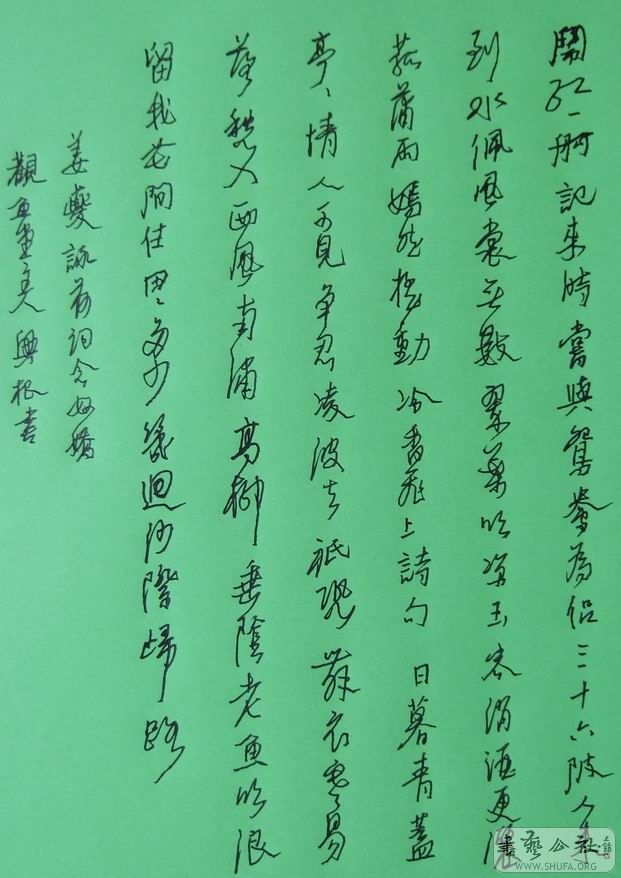 鬧紅一舸記來時嘗與鴛鴦為侶三十六陂人未
到水佩風裳无數翠葉吹涼玉容消酒更洒
菰蒲雨嫣然搖動冷香飛上詩句 日暮青蓋
亭〻情人不見争忍凌波去祇恐舞衣寒易
落愁入西風南浦高柳垂陰老魚吹浪
留我花間住田〻多少幾迴沙際歸路
姜夔詠荷詞念奴嬌
觀魚堂主人 興根書
書藝公社
WWW.SHUFA.ORG